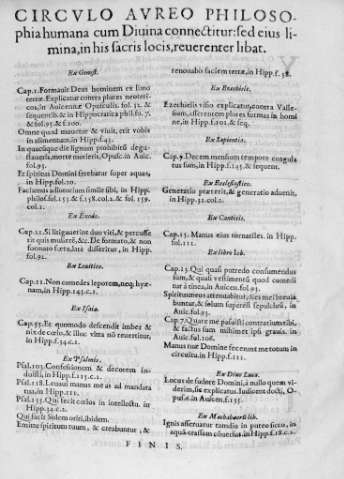 CIRCVLO AVREO PHILOSO-
phia humana cum Diuina connectitur: sed eius li-
mina, in his sacris locis, reuerenter libat.
Ex Genesi.
Cap.2. Formauit Deus hominem ex limo
terræ. Explicatur contra plures neoteri-
cos, in Auicennæ Opusculis. fol. 32. &
sequenti. & in Hippocratica philoso. 7.
& fol. 95. & 100.
Omne quod mouetur & viuit, erit vobis
in alimentum, in Hipp. 45.
In quacunque die lignum prohibitū degu-
staueris, morte morieris, Opus. in Auic.
fol. 95.
Et spiritus Domini ferebatur super aquas,
in Hipp. fol. 10.
Faciamus adiutorium simile sibi, in Hipp.
philos. fol. 153. & f. 158. col. 2. & fol. 159.
col. 2.
Ex Exodo.
Cap. 21. Si litigauerint duo viri, & percusse-
rit quis mulierē, &c. De formato, & non
formato fœtu, late disseritur, in Hipp.
fol. 91.
Ex Leuitico.
Cap. 11. Non comedes leporem, neq; hyæ-
nam, in Hipp. 145. c. 1.
Ex Isaia.
Cap. 55. Et quomodo descendit imber &
nix de cœlo, & illuc vltra nō reuertitur,
in Hipp. f. 34. c. 1.
Ex Psalmis.
Psal. 103. Confessionem & decorem in-
duisti, in Hipp. f. 125. c. 2.
Psal. 118. Leuaui manus meas ad mandata
tua, in Hipp. 111.
Psal. 135. Qui fecit cœlos in intellectu. in
Hipp. 34. c. 2.
Qui facit Solem oriri, ibidem.
Emitte spiritum tuum, & creabuntur, &
renouabis faciem terræ, in Hipp. f. 38.
Ex Ezechiele.
Ezechielis visio explicatur, contra Valle-
sium, asserentem plures formas in homi-
ne, in Hipp. f. 101. & seq.
Ex Sapientia.
Cap. 7. Decem mensium tempore coagula
tus sum, in Hipp. f. 145. & sequent.
Ex Ecclesiastico.
Generatio præterit, & generatio aduenit,
in Hipp. 32. col. 2.
Ex Canticis.
Cap. 15. Manus eius tornatiles. in Hipp.
fol. 111.
Ex libro Iob.
Cap. 13. Qui quasi putredo consumendus
sum, & quasi vestimentū quod comedi
tur à tinea, in Auicen. fol. 93.
Spiritus meus attenuabitur, dies mei breuia
buntur, & solum superest sepulchrū, in
Auic. fol. 93.
Cap. 7. Quare me posuisti contrarium tibi,
& factus sum mihimet ipsi grauis. in
Auic. fol. 108.
Manus tuæ Domine fecerunt me totum in
circuitu, in Hipp. f. 111.
Ex Diuo Luca.
Locus de sudore Domini, à nullo quem vi-
derim, sic explicatus. Iuissent docti, O-
pus. in Auicen. f. 135.
Ex Machabæorū lib.
Ignis asseruatur tamdiu in puteo sicco, in
aquā crassam cōuersus, in Hipp. f. 18. c. 1.
FINIS.